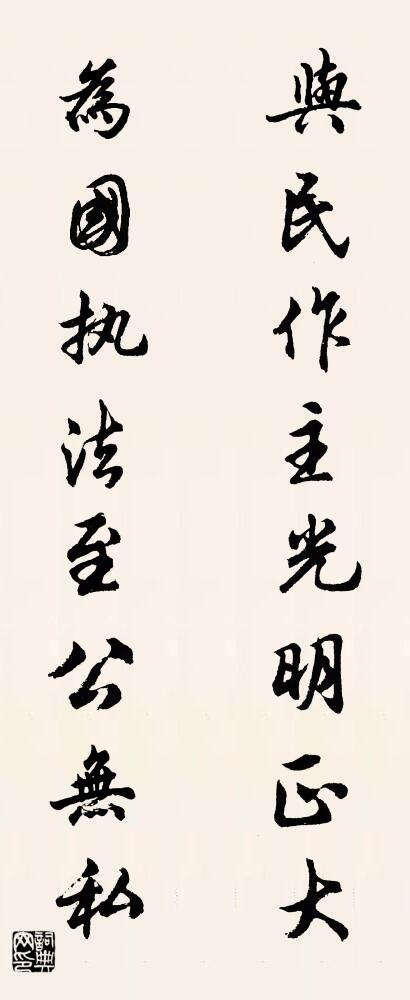 與民作主光明正大
為國执法至公無私
詞典網印